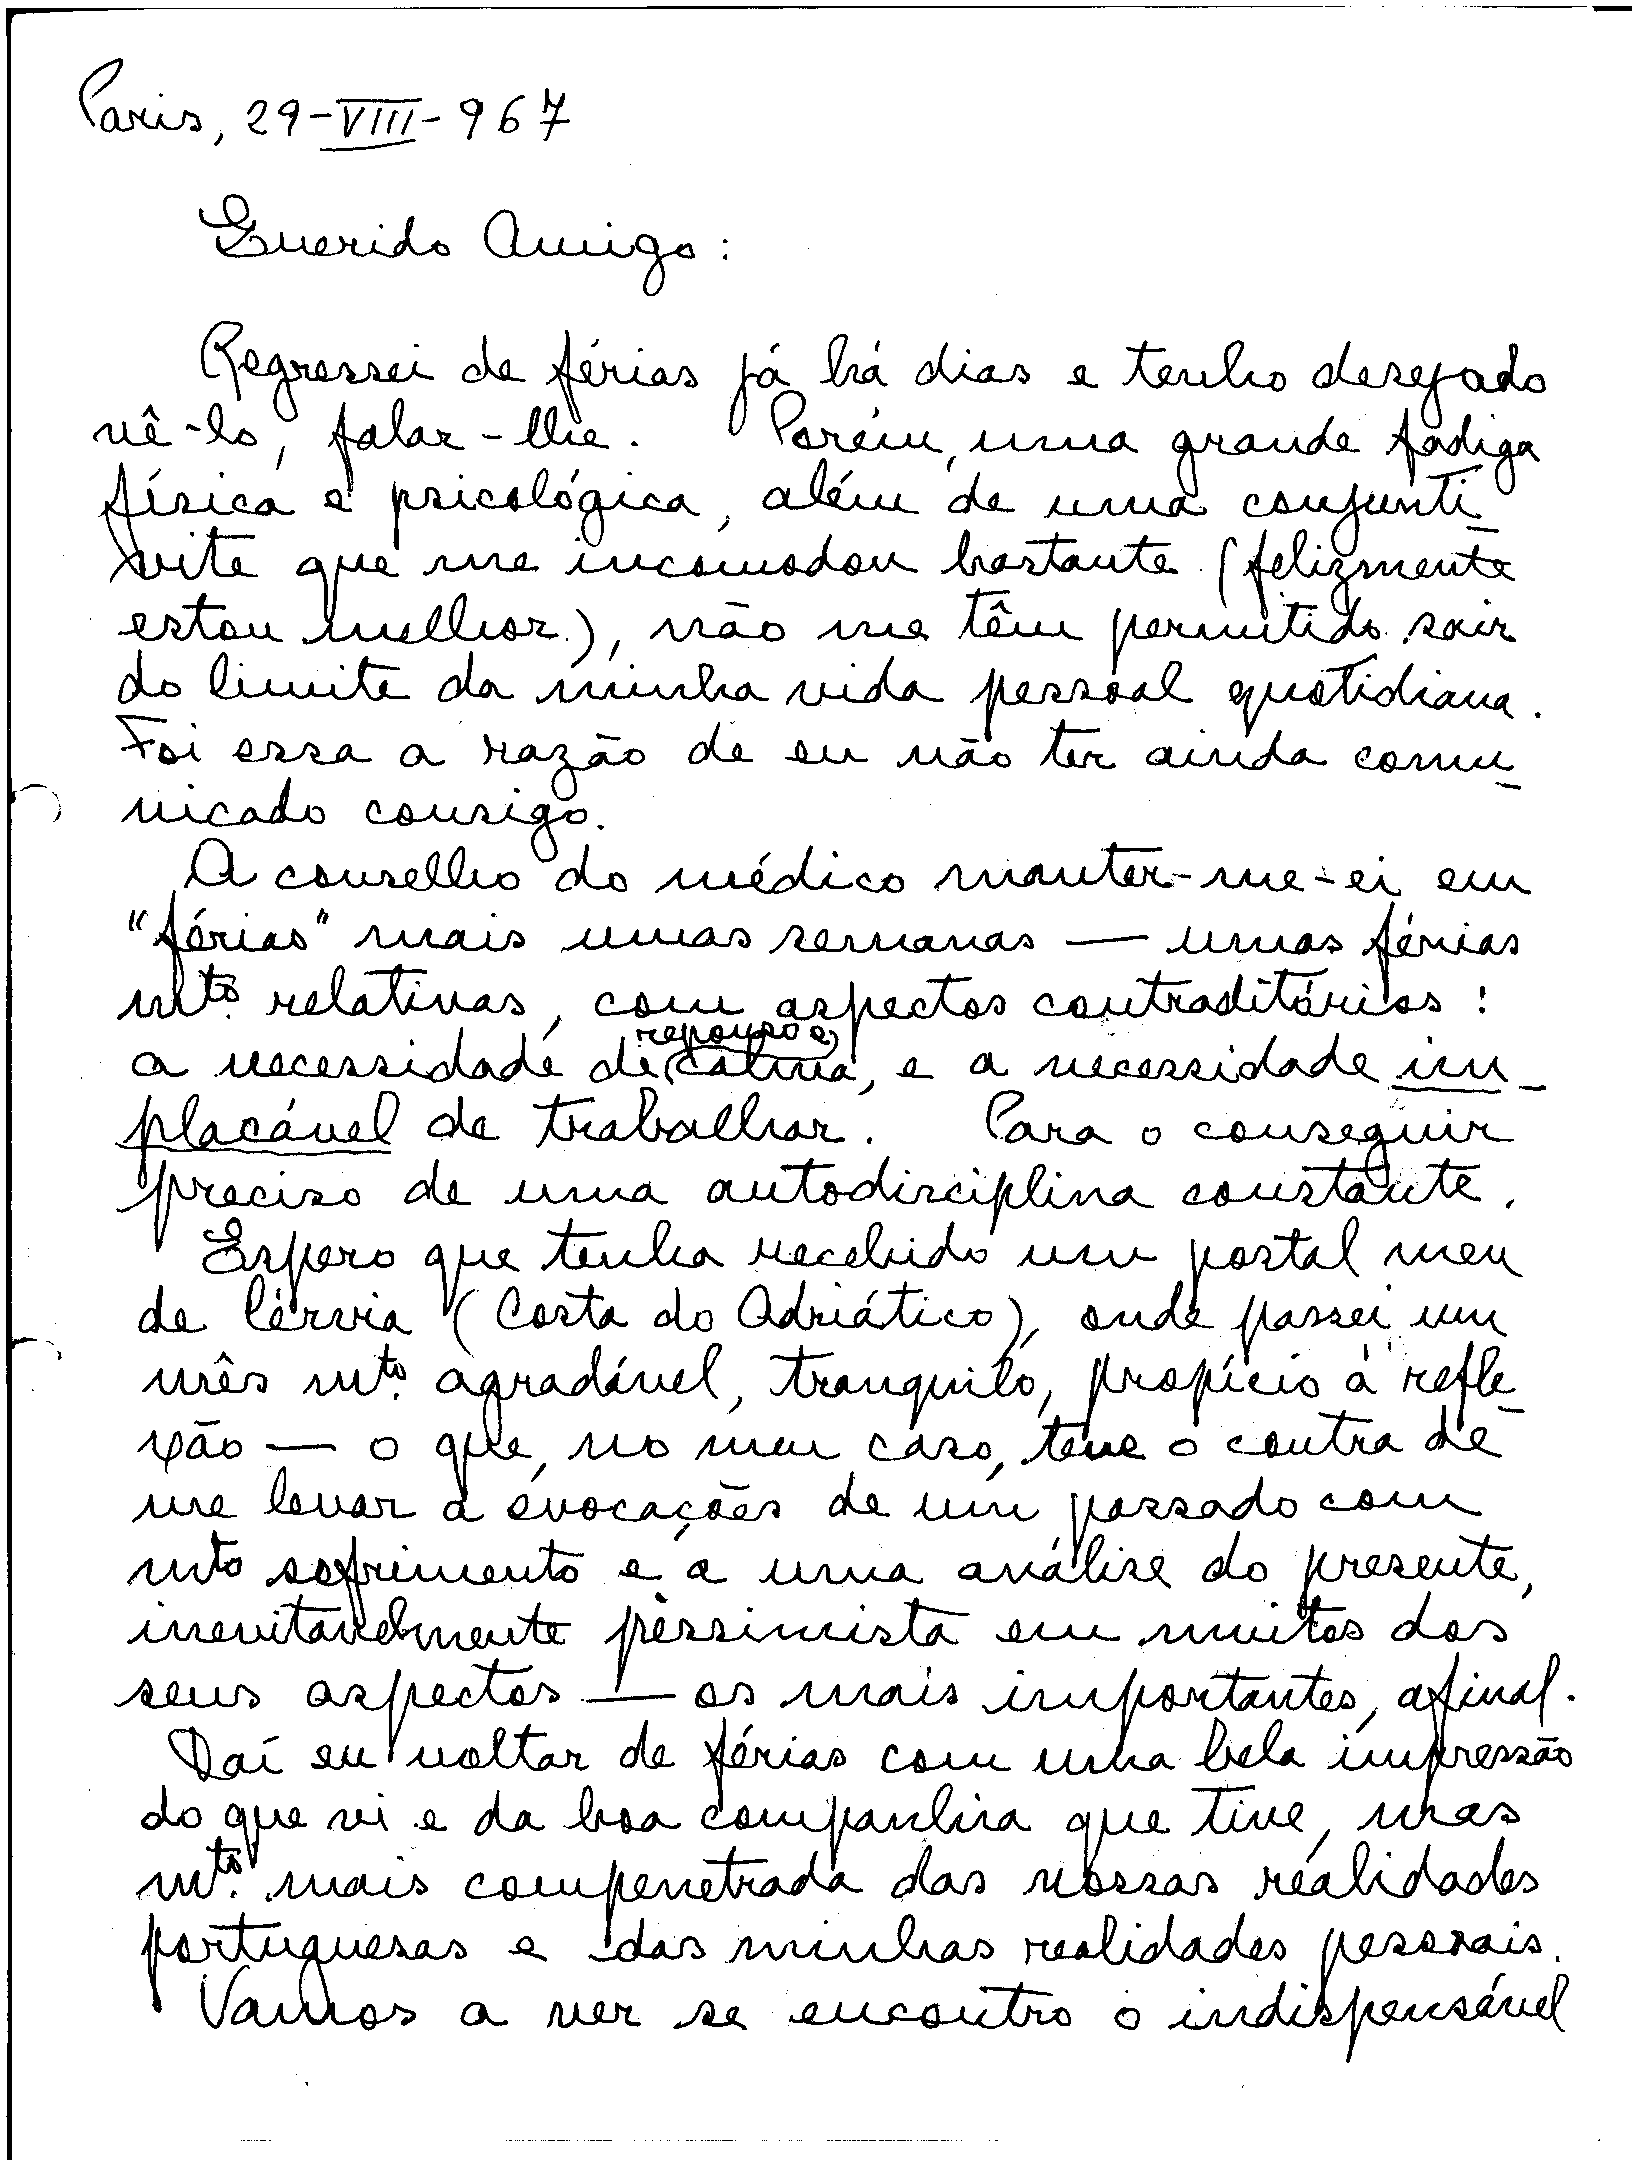 Paris, 29-VIII-967
Querido Amigo:
Regressei de férias já há dias e tenho desejado
vê-lo, falar-lhe. Porém, uma grande fadiga
física e psicológica, além de uma conjunti-
vite que me incomodou bastante (felizmente
estou melhor), não me têm permitido sair
do limite da minha vida pessoal quotidiana.
Foi essa a razão de eu não ter ainda comu-
nicado consigo.
A conselho do médico manter-me-ei em
"férias" mais umas semanas — umas férias
mtº relativas, com aspectos contraditórios:
repouso e
a necessidade de calma, e a necessidade im-
placável de trabalhar. Para o conseguir
preciso de uma autodisciplina constante.
Espero que tenha recebido um postal meu
de Cérvia (Costa do Adriático), onde passei um
mês mtº agradável, tranquilo, propício à refle-
xão — o que, no meu caso, teve o contra de
me levar a evocações de um passado com
mtº sofrimento e a uma análise do presente,
inevitavelmente pessimista em muitos dos
seus aspectos — os mais importantes, afinal.
Daí eu voltar de férias com uma bela impressão
do que vi e da boa companhia que tive, mas
mtº mais compenetrada das nossas realidades
portuguesas e das minhas realidades pessoais.
Vamos a ver se encontro o indispensável